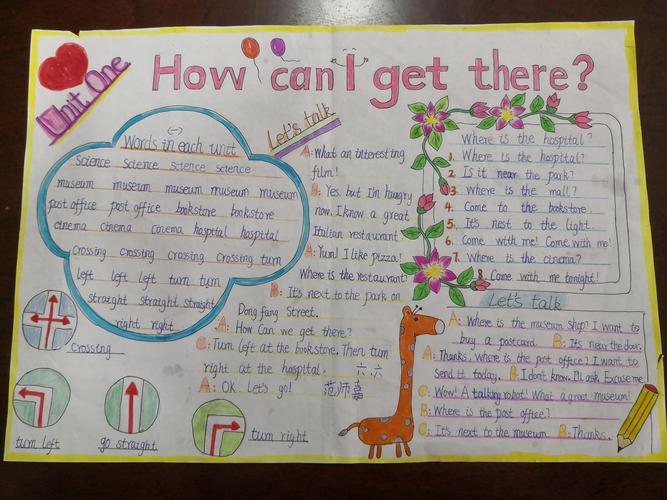 Unit One
How can I get there?
(一)
Words in each unit
Science science science science
museum museum museum museum museum
post office post office bookstore bookstore
cinema cinema cinema hospital hospital
crossing crossing crossing crossing turn
left left left turn turn
straight straight straight
right right
Let's talk
A: What an interesting
film!
B: Yes, but I'm hungry
now. I know a great
Italian restaurant.
A: Yum! I like pizza!
Where is the restaurant?
B: It's next to the park on
Dong fang Street.
A: How can we get there?
C: Turn left at the bookstore. Then turn
right at the hospital.
A: Ok. Let's go!
六.六
范师嘉
crossing
turn left
go straight
turn right
Where is the hospital?
1. Where is the hopital?
2. Is it near the park?
3. Where is the mall?
4. Come to the bookstore.
5. It's next to the light.
6. Come with me! Come with me!
7. Where is the cinema?
8. Come with me tonight!
Let's talk
A: Where is the museum shop? I want to
buy a postcard. B: It's near the door.
A: Thanks. Where is the post office? I want to
send it today. B: I don't know. I'll ask. Excuse me.
C: Wow! A talking robot! What a great museum!
B: Where is the post office?
C: It's next to the museum. B: Thanks.